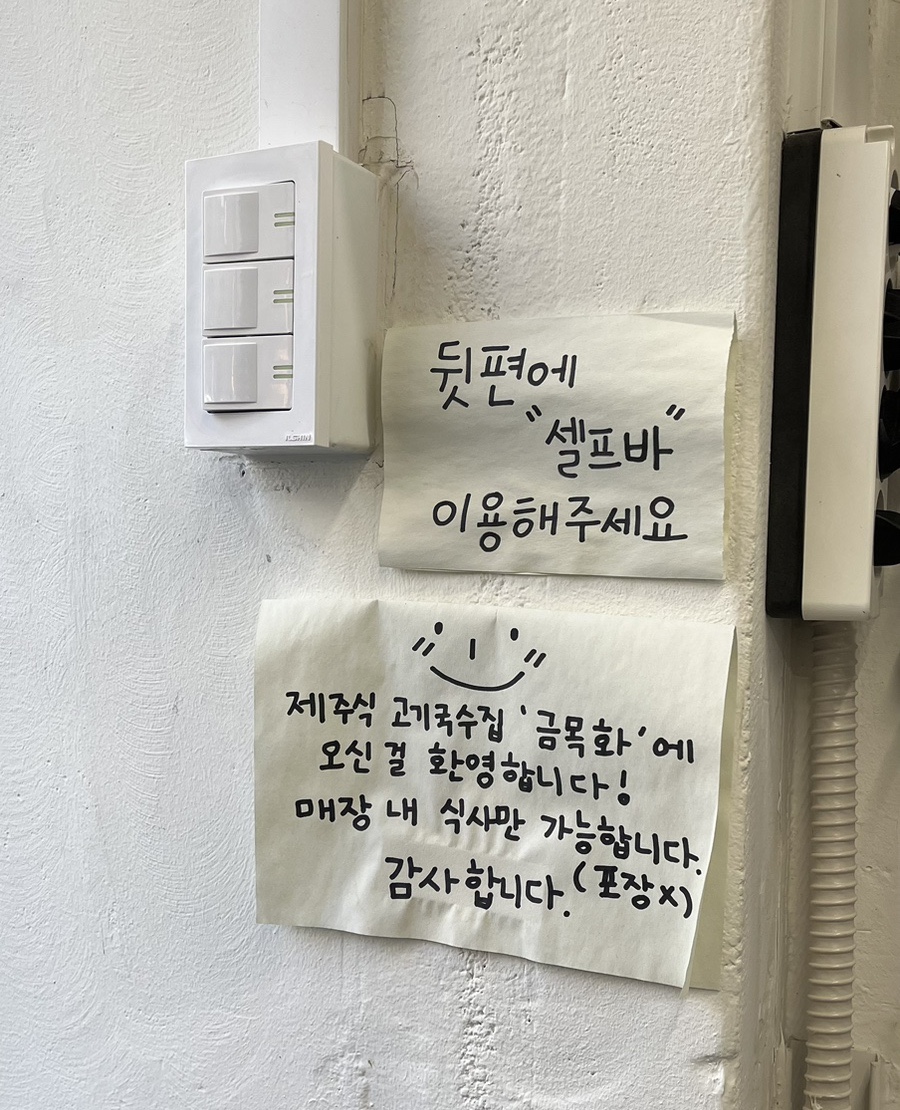 뒷편에
"셀프바"
이용해주세요
제주식 고기국수집 '금목화'에
오신 걸 환영합니다!
매장 내 식사만 가능합니다.
감사합니다. (포장X)